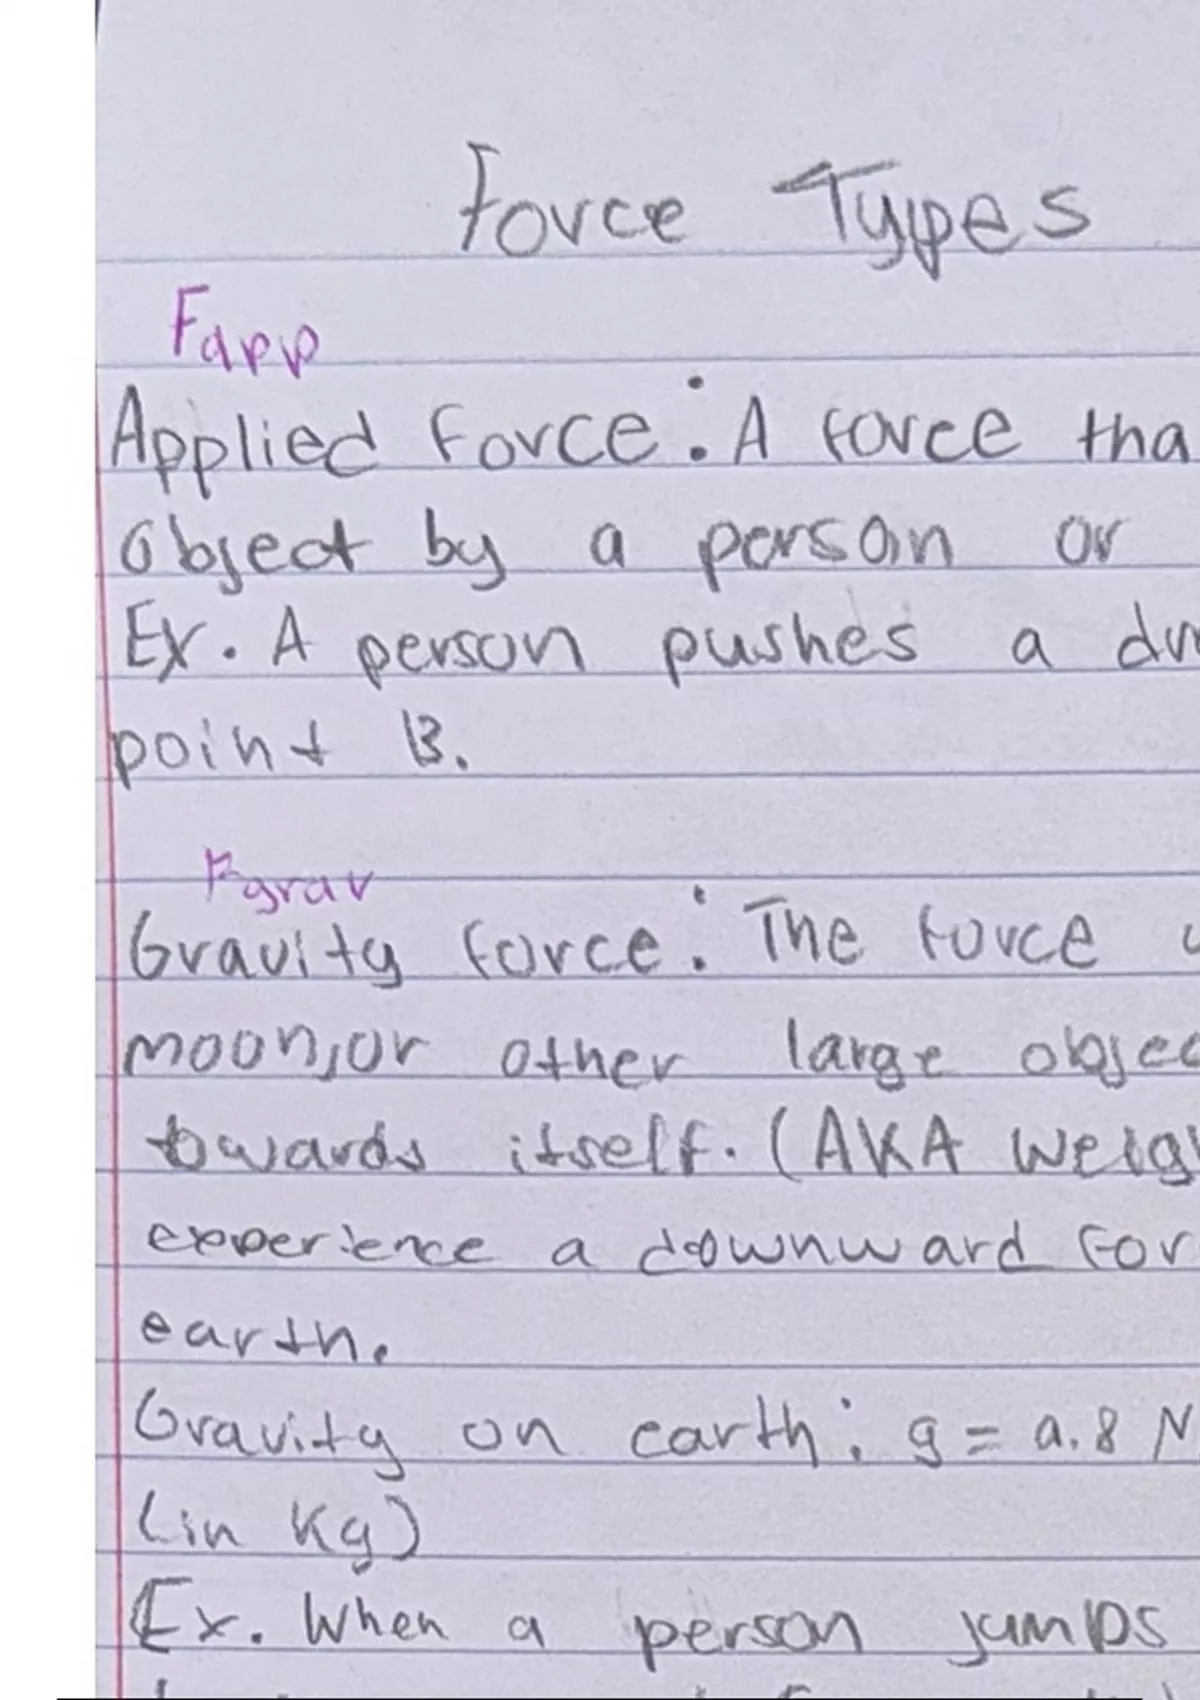 Force Types
Fapp
Applied Force: A force tha
object by a person or
Ex. A person pushes a
point B.
Fgrav
Gravity force: The force
moon, or other large objec
towards itself. (AKA Weigh
experience a downward For
earth.
Gravity on earth: g = 9.8 N
(in Kg)
Ex. When a person jumps